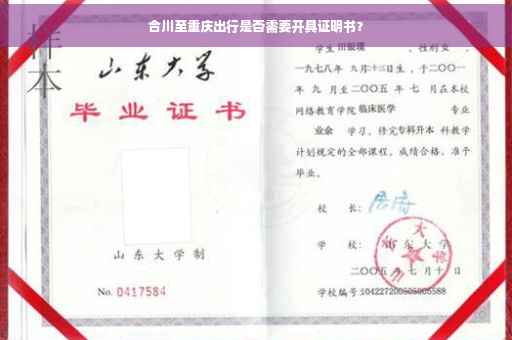 合川至重庆出行是否需要开具证明书？
样本
山东大学
毕业证书
山东大学制
No. 0417584
学生 田银璞 ，性别女，
一九七八年 九月十三日生，于二〇〇一
年 九 月至二〇〇五 年 七 月在本校
网络教育学院 临床医学 专业
业余 学习，修完专科升本 科教学
计划规定的全部课程，成绩合格，准予
毕业。
校 长：
学 校：山东大学
二〇〇五 年 七 月 十 日
学校编号:104227200505005588